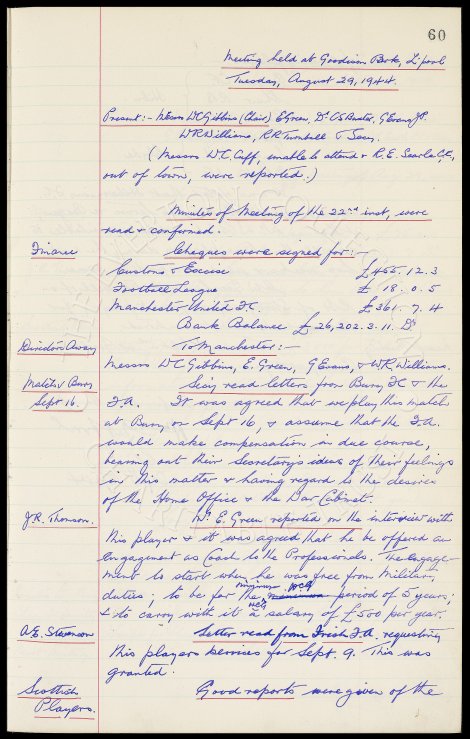 60
Meeting held at Goodison Park, L'pool
Tuesday, August 29, 1944.
Present:- Messrs W.C. Gibbins (Chair) E. Green, Dr C.S. Baxter, G Evans J.P.
W.R. Williams, R.R. Turnbull & Secy.
(Messrs W.C. Cuff, unable to attend & R.E. Searle C.C.,
out of town, were reported.)
Minutes of Meeting of the 22nd inst, were
read & confirmed.
Finance
Cheques were signed for:-
Customs & Excise £455. 12. 3
Football League £ 18. 0. 5
Manchester United F.C. £361. 7. 4
Bank Balance £26,202. 3. 11. Dr
Directors Away
To Manchester:-
Messrs W.C. Gibbins, E. Green, G Evans, & W.R. Williams.
Match v Bury
Sept 16.
Secy read letters from Bury F.C & the
F.A. It was agreed that we play this match
at Bury on Sept 16, & assume that the F.A.
would make compensation in due course,
bearing out their Secretary's ideas of their feelings
in this matter & having regard to the desires
of the Home Office & the War Cabinet.
J.R. Thomson.
Mr. E. Green reported on the interview with
this player & it was agreed that he be offered an
engagement as Coach to the Professionals. The engage-
ment to start when he was free from Military
duties; to be for the minimum period of 5 years;
& to carry with it a salary of £500 per year.
A.E. Stevenson
Letter read from Irish F.A. requesting
this players services for Sept. 9. This was
granted.
Scottish
Players.
Good reports were given of the